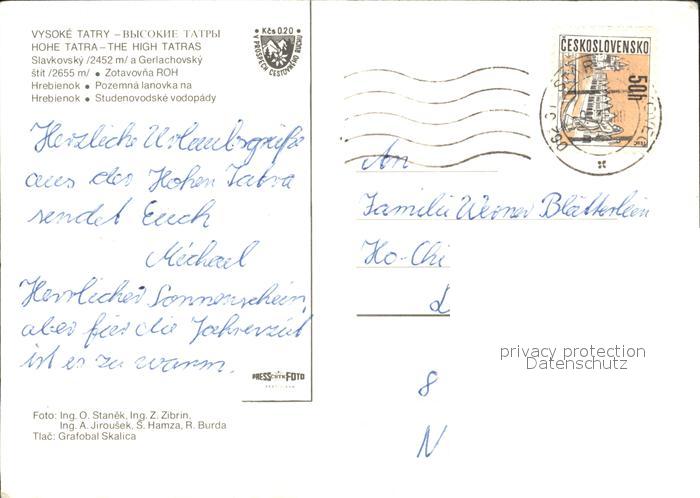 VYSOKÉ TATRY – ВЫСОКИЕ ТАТРЫ
HOHE TATRA – THE HIGH TATRAS
Slavkovský /2452 m/ a Gerlachovský
štít /2655 m/ • Zotavovňa ROH
Hrebienok • Pozemná lanovka na
Hrebienok • Studenovodské vodopády
Kčs 0,20
V PROSPECH CESTOVNÉHO RUCHU
ČESKOSLOVENSKO
50h
Herzliche Urlaubsgrüße
aus der Hohen Tatra
sendet Euch
Michael
Herrlicher Sonnenschein,
aber für die Jahreszeit
ist es zu warm.
An
Familie Werner Blätterlein
Ho-Chi
8
N
privacy protection
Datenschutz
PRESSFOTO
Foto: Ing. O. Staněk, Ing. Z. Zibrin,
Ing. A. Jiroušek, Š. Hamza, R. Burda
Tlač: Grafobal Skalica